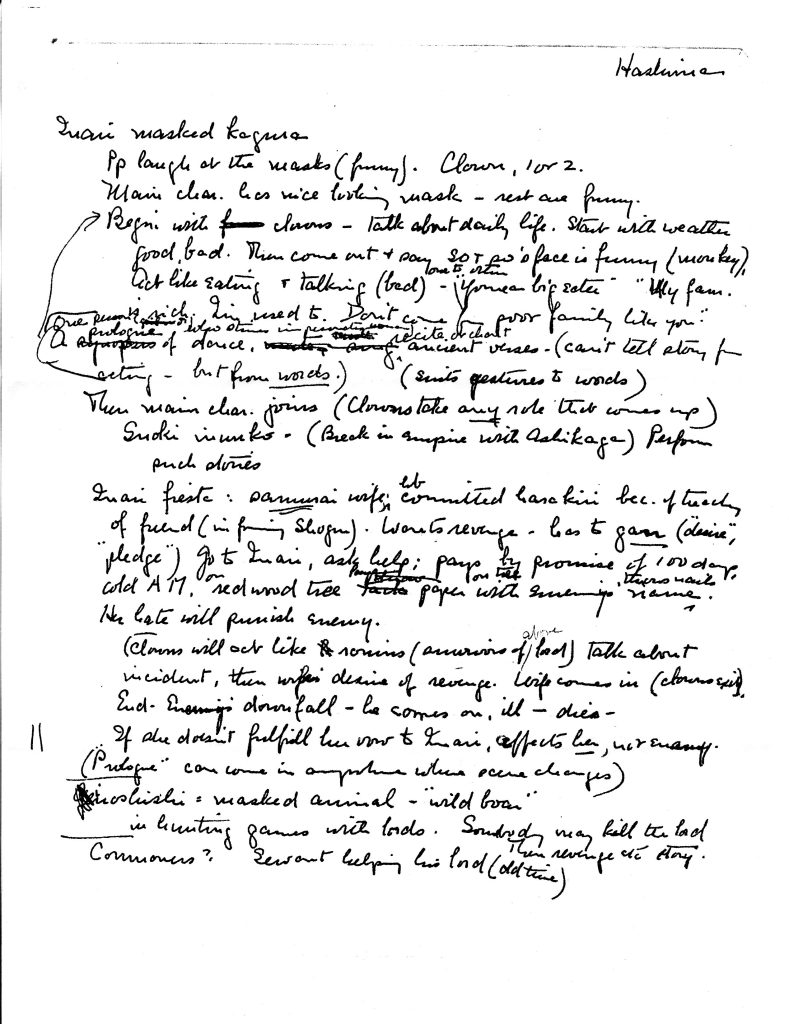 Hashima
Inari masked kagura
Pp laugh at the masks (funny). Clown, 1 or 2.
Main char. has nice looking mask – rest are funny.
Begin with clowns – talk about daily life. Start with weather
good, bad. Then come out + say so + so's face is funny (monkey),
Act like eating + talking (bad) – one to other "You're a big eater" "My fam.
rich. I'm used to. Don't come fr poor family like you."
One person
prologue who stands in recite or chant
A of dance, ancient verses – (can't tell story fr
acting – but from words.) (suits gestures to words)
Then main char. joins (Clowns take any role that comes up)
(Break in empire with Ashikaga) Perform
such stories
Inari fiesta: samurai wife; hb committed harakiri bec. of treachy
of friend (in Shogun). Wants revenge – has to gan ("desire",
"pledge") Go to Inari, ask help; pays by promise of 100 days,
cold A.M. on redwood tree paper with enemy's name.
Her hate will punish enemy.
(Clowns will act like ronins (survivors of above lord) talk about
incident, then wife's desire of revenge. Wife comes in (clowns exit).
End – Enemy's downfall – he comes on, ill – dies –
11
If she doesn't fulfill her vow to Inari, affects her, not enemy.
("Prologue" can come in anywhere where scene changes)
inoshishi = masked animal – "wild boar"
in hunting games with lords. Somebody may kill the lord
then revenge etc story.
Commoners? Servant helping his lord (old time)